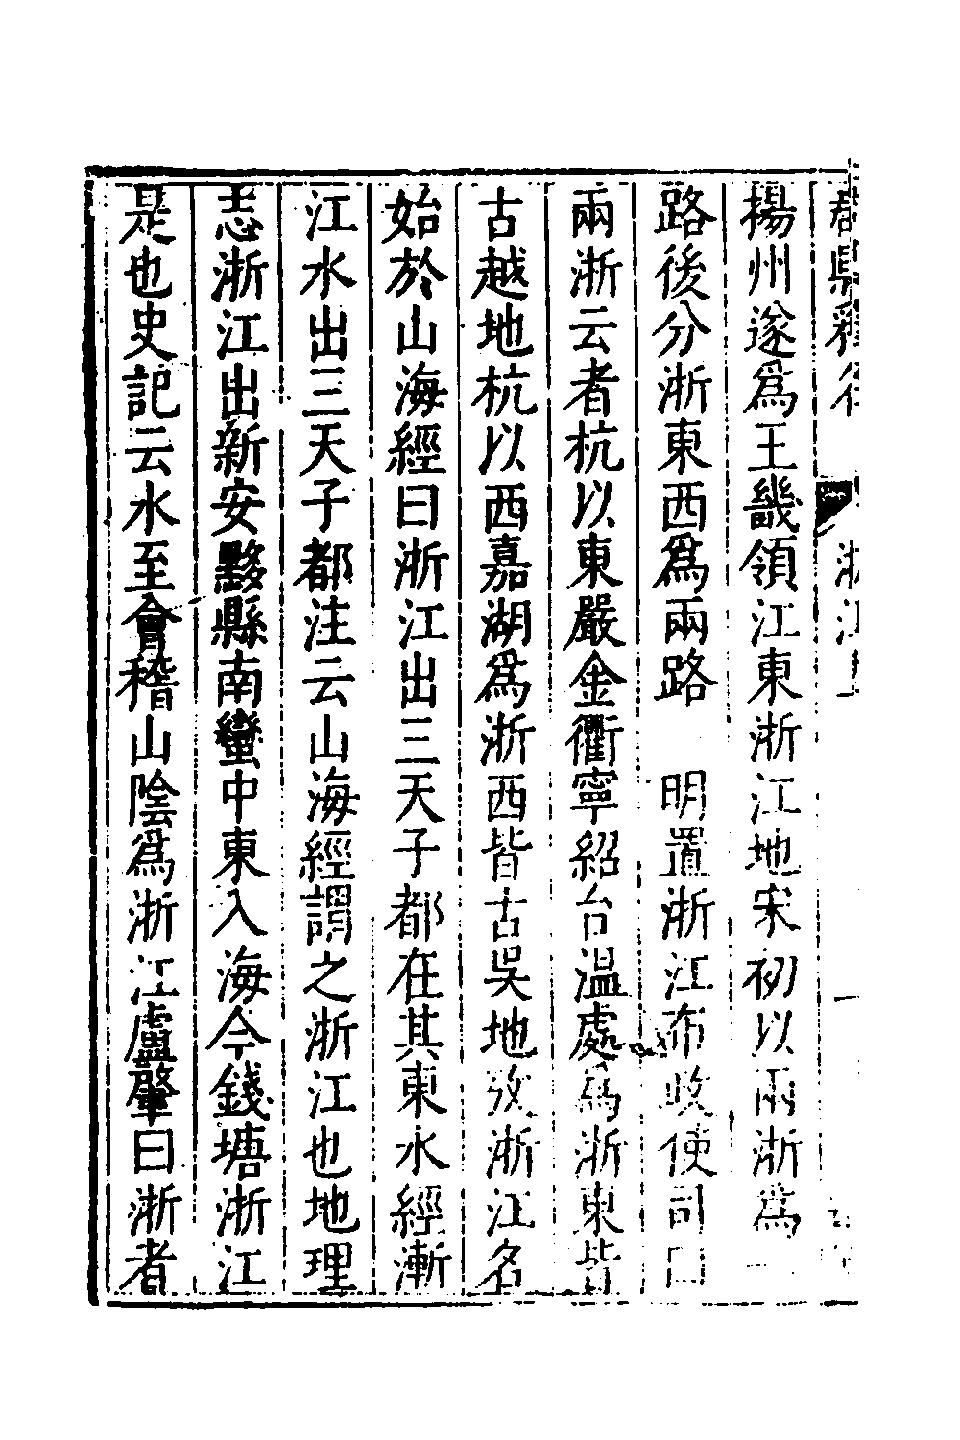 郡縣釋名 浙江
揚州遂爲王畿領江東浙江地宋初以兩浙爲一
路後分浙東西爲兩路 明置浙江布政使司曰
兩浙云者杭以東嚴金衢寧紹台温處爲浙東皆
古越地杭以西嘉湖爲浙西皆古吳地攷浙江名
始於山海經曰浙江出三天子都在其東水經漸
江水出三天子都注云山海經謂之浙江也地理
志浙江出新安黟縣南蠻中東入海今錢塘浙江
是也史記云水至會稽山陰爲浙江盧肇曰浙者